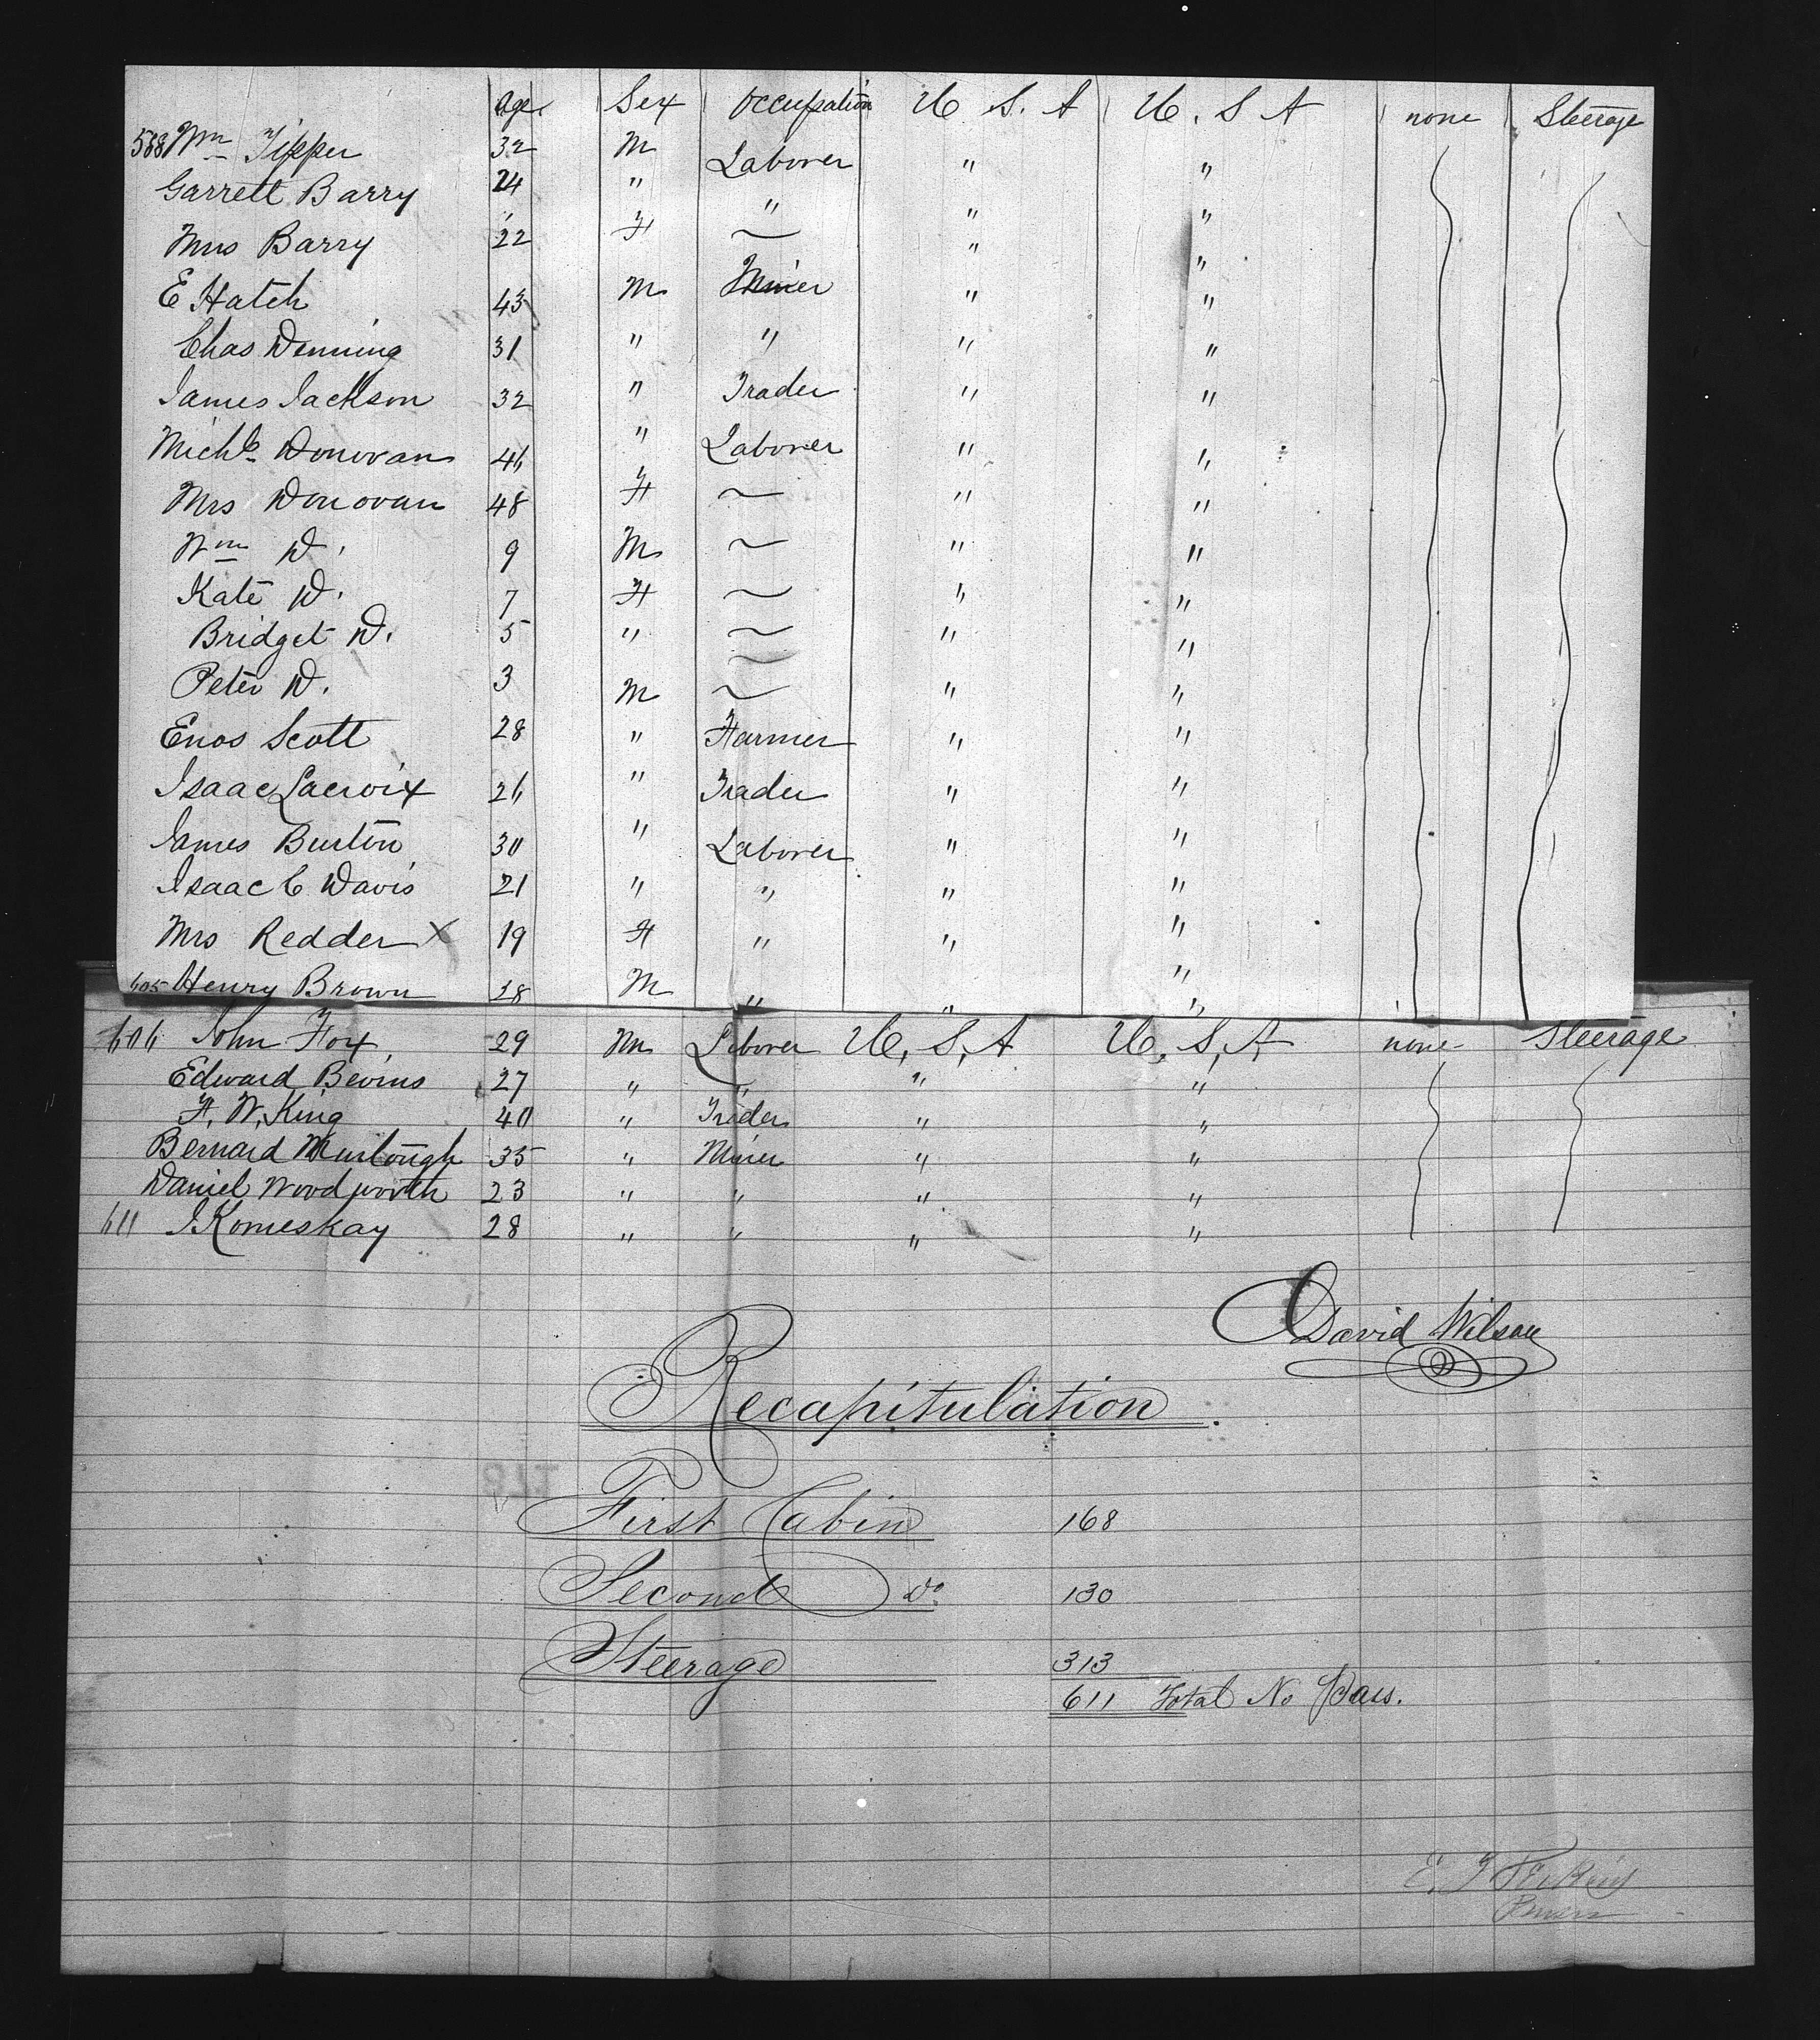 Age Sex Occupation U. S. A U. S A none Steerage
588 Wm Tipper 32 M Laborer " "
Garrett Barry 24 " " " "
Mrs Barry 22 F ~ " "
E Hatch 43 M Miner " "
Chas Denning 31 " " " "
James Jackson 32 " Trader " "
Michl Donovan 46 " Laborer " "
Mrs Donovan 48 F ~ " "
Wm D. 9 M ~ " "
Kate D. 7 F ~ " "
Bridget D. 5 " ~ " "
Peter D. 3 M ~ " "
Enos Scott 28 " Farmer " "
Isaac Lacroix 26 " Trader " "
James Burton 30 " Laborer " "
Isaac C Davis 21 " " " "
Mrs Redder X 19 F " " "
605 Henry Brown 28 M " " "
606 John Fox 29 M Laborer U, S, A U, S, A none Steerage
Edward Bevins 27 " " " "
F. W. King 40 " Trader " "
Bernard Murtough 35 " Miner " "
Daniel Woodworth 23 " " " "
611 J Komeskay 28 " " " "
David Wilson
Recapitulation.
First Cabin 168
Second Do 130
Steerage 313
611 Total No Pass.